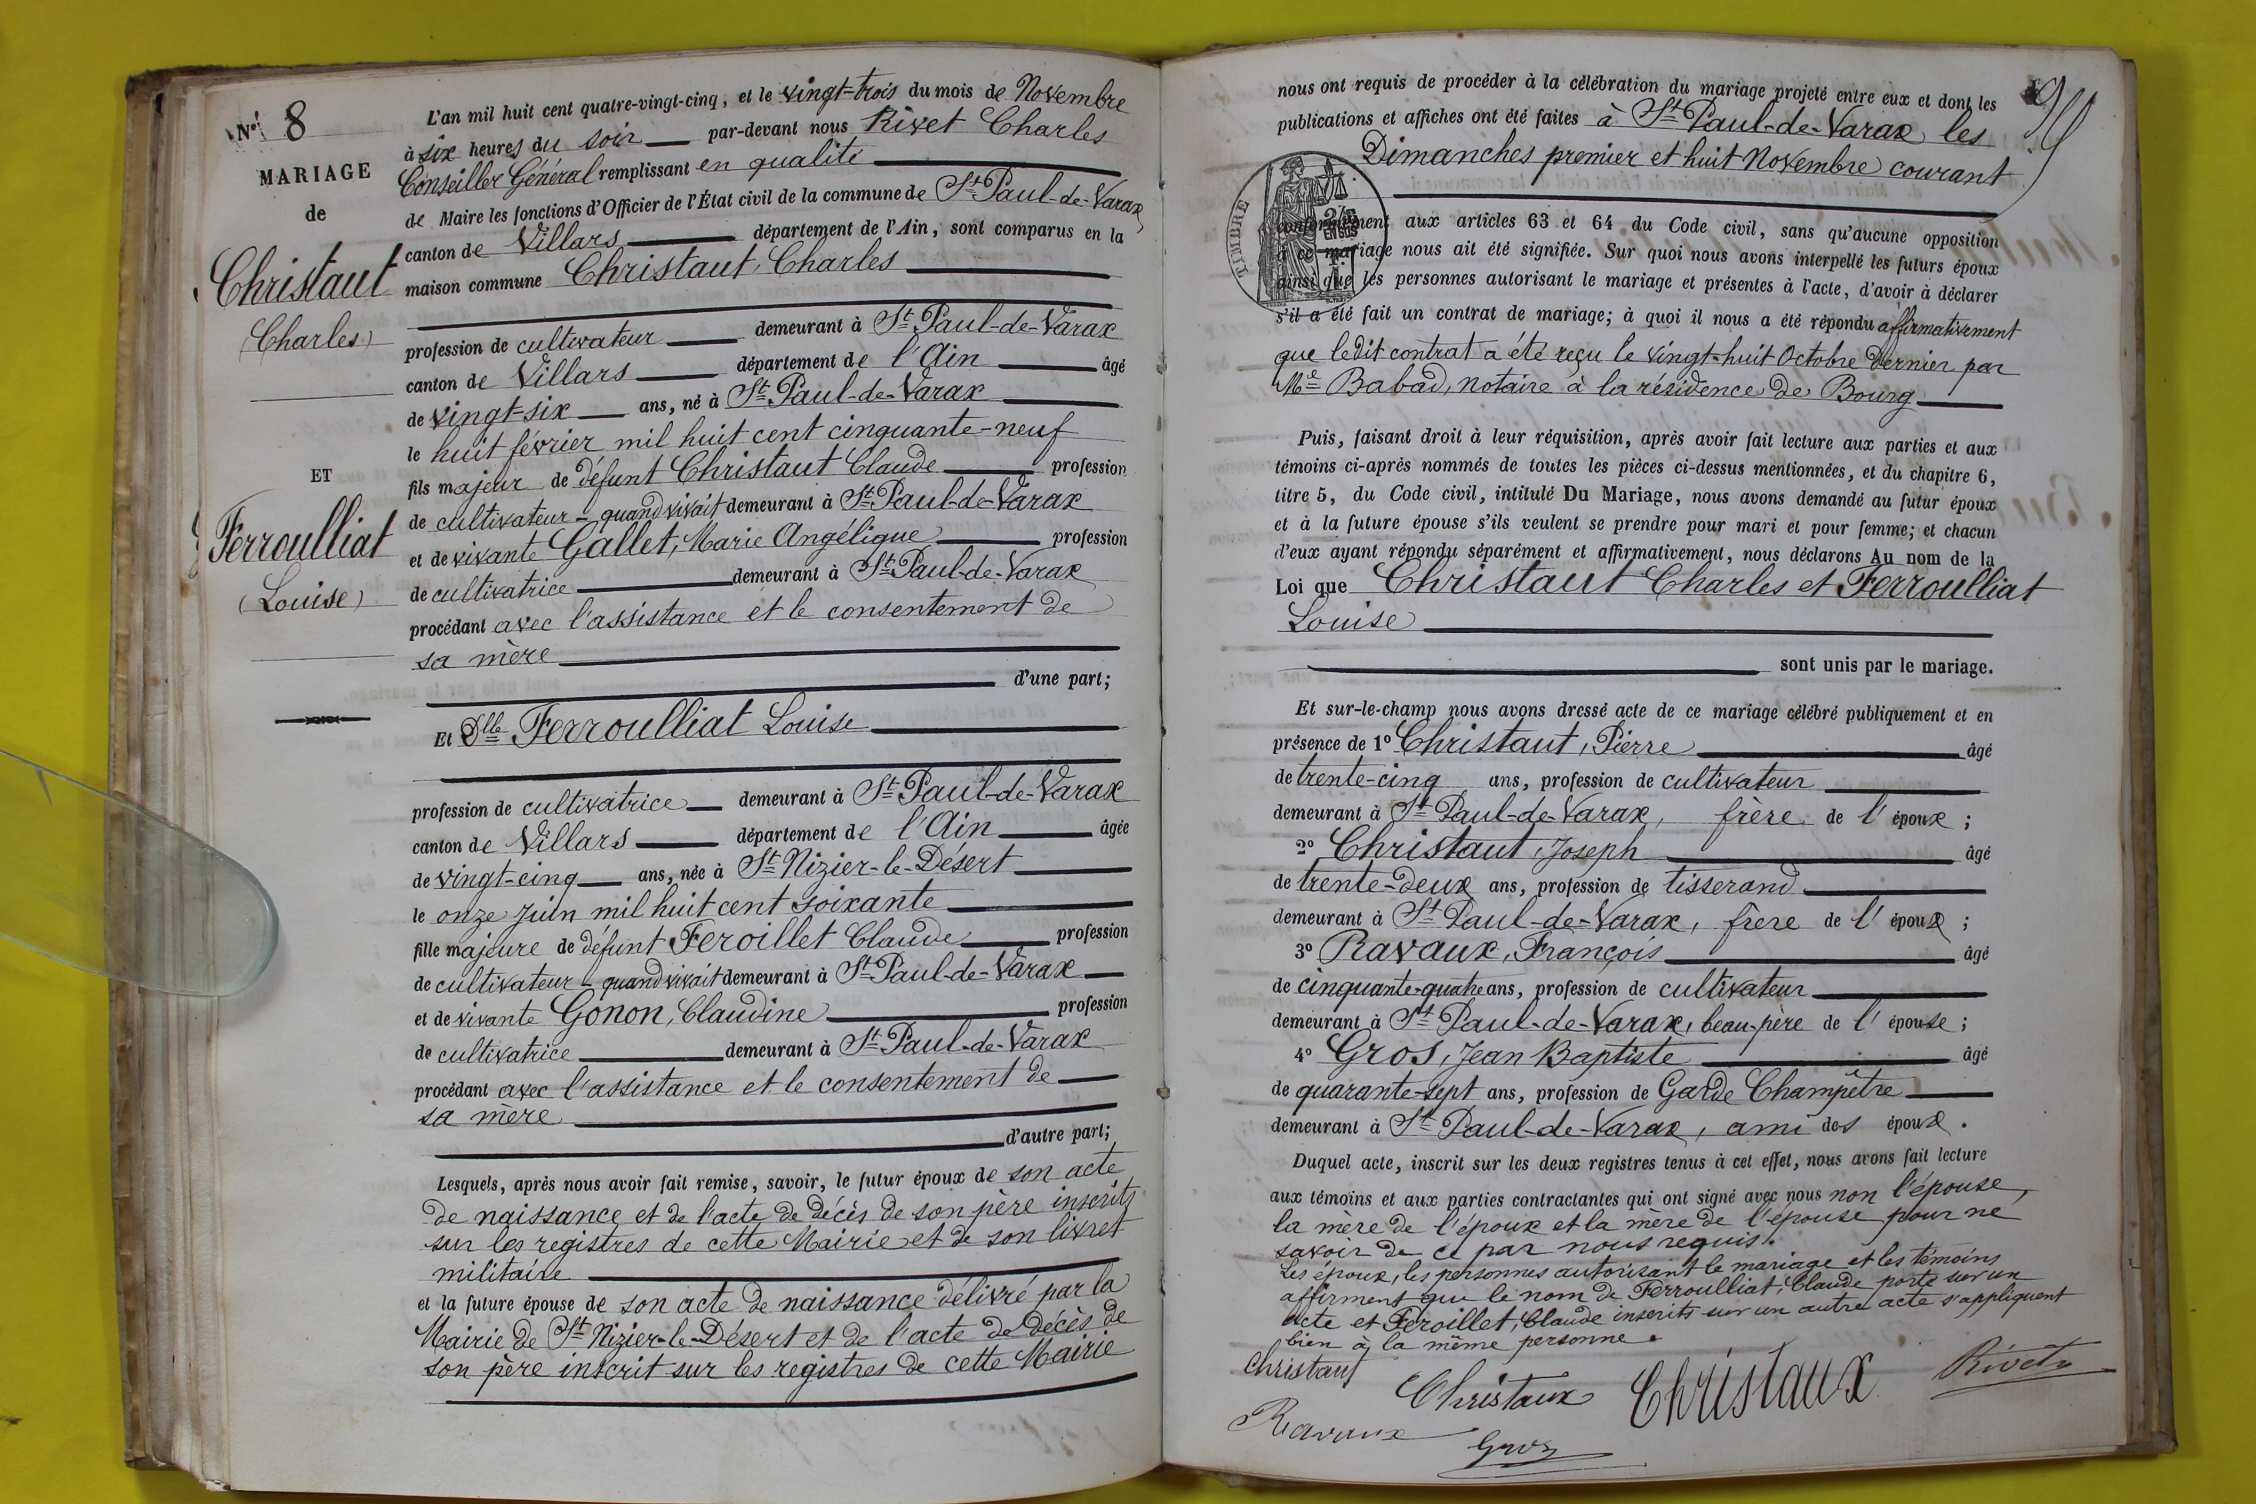 N° 8
MARIAGE
de
Christaut
(Charles)
ET
Ferroulliat
(Louise)
L'an mil huit cent quatre-vingt-cinq, et le vingt-trois du mois de Novembre
à six heures du soir par-devant nous Rivet Charles
Conseiller Général remplissant en qualité
de Maire les fonctions d'Officier de l'État civil de la commune de St Paul-de-Varax,
canton de Villars département de l'Ain, sont comparus en la
maison commune Christaut, Charles
profession de cultivateur demeurant à St Paul-de-Varax
canton de Villars département de l'Ain âgé
de vingt-six ans, né à St Paul-de-Varax
le huit février mil huit cent cinquante-neuf
fils majeur de défunt Christaut Claude profession
de cultivateur - quand vivait demeurant à St Paul-de-Varax
et de vivante Gallet, Marie Angélique profession
de cultivatrice demeurant à St Paul-de-Varax
procédant avec l'assistance et le consentement de
sa mère
d'une part;
Et Dlle Ferroulliat Louise
profession de cultivatrice demeurant à St Paul-de-Varax
canton de Villars département de l'Ain âgée
de vingt-cinq ans, née à St Nizier-le-Désert
le onze juin mil huit cent soixante
fille majeure de défunt Feroillet Claude profession
de cultivateur - quand vivait demeurant à St Paul-de-Varax
et de vivante Gonon, Claudine profession
de cultivatrice demeurant à St Paul-de-Varax
procédant avec l'assistance et le consentement de
sa mère
d'autre part;
Lesquels, après nous avoir fait remise, savoir, le futur époux de son acte
de naissance et de l'acte de décès de son père inscrits
sur les registres de cette Mairie et de son livret
militaire
et la future épouse de son acte de naissance délivré par la
Mairie de St Nizier-le-Désert et de l'acte de décès de
son père inscrit sur les registres de cette Mairie
nous ont requis de procéder à la célébration du mariage projeté entre eux et dont les
publications et affiches ont été faites à St Paul-de-Varax les
Dimanches premier et huit Novembre courant
TIMBRE
conformément aux articles 63 et 64 du Code civil, sans qu'aucune opposition
à ce mariage nous ait été signifiée. Sur quoi nous avons interpellé les futurs époux
ainsi que les personnes autorisant le mariage et présentes à l'acte, d'avoir à déclarer
s'il a été fait un contrat de mariage; à quoi il nous a été répondu affirmativement
que ledit contrat a été reçu le vingt-huit Octobre dernier par
Me Babad, notaire à la résidence de Bourg
Puis, faisant droit à leur réquisition, après avoir fait lecture aux parties et aux
témoins ci-après nommés de toutes les pièces ci-dessus mentionnées, et du chapitre 6,
titre 5, du Code civil, intitulé Du Mariage, nous avons demandé au futur époux
et à la future épouse s'ils veulent se prendre pour mari et pour femme; et chacun
d'eux ayant répondu séparément et affirmativement, nous déclarons Au nom de la
Loi que Christaut Charles et Ferroulliat
Louise
sont unis par le mariage.
Et sur-le-champ nous avons dressé acte de ce mariage célébré publiquement et en
présence de 1° Christaut, Pierre âgé
de trente-cinq ans, profession de cultivateur
demeurant à St Paul-de-Varax, frère de l'époux;
2° Christaut, Joseph âgé
de trente-deux ans, profession de tisserand
demeurant à St Paul-de-Varax, frère de l'époux;
3° Ravaux, François âgé
de cinquante-quatre ans, profession de cultivateur
demeurant à St Paul-de-Varax, beau-père de l'épouse;
4° Gros, Jean Baptiste âgé
de quarante-sept ans, profession de Garde Champêtre
demeurant à St Paul-de-Varax, ami des époux.
Duquel acte, inscrit sur les deux registres tenus à cet effet, nous avons fait lecture
aux témoins et aux parties contractantes qui ont signé avec nous non l'épouse,
la mère de l'époux et la mère de l'épouse pour ne
savoir de ce par nous requis.
Les époux, les personnes autorisant le mariage et les témoins
affirment que le nom de Ferroulliat, Claude porté sur un
acte et Feroillet, Claude inscrits sur un autre acte s'appliquent
bien à la même personne.
Christaut
Christaux
Christaux
Rivet
Ravaux
Gros